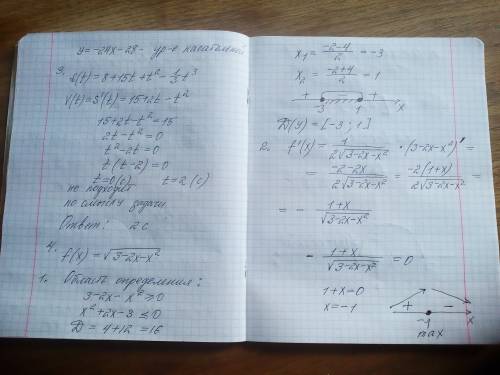 y = -24x - 28 - ур-е касательной
3. S(t) = 8 + 15t + t² - 1/3 t³
V(t) = S'(t) = 15 + 2t - t²
15 + 2t - t² = 15
2t - t² = 0
t² - 2t = 0
t(t - 2) = 0
t = 0 (с) t = 2 (с)
не подходит
по смыслу задачи
Ответ: 2 с
4. f(x) = √(3-2x-x²)
1. Область определения:
3 - 2x - x² ≥ 0
x² + 2x - 3 ≤ 0
D = 4 + 12 = 16
x₁ = (-2-4)/2 = -3
x₂ = (-2+4)/2 = 1
+ - +
-3 1 x
D(y) = [-3; 1]
2. f'(x) = 1/(2√(3-2x-x²)) · (3-2x-x²)' =
= (-2-2x)/(2√(3-2x-x²)) = -2(1+x)/(2√(3-2x-x²)) =
= - (1+x)/√(3-2x-x²)
- (1+x)/√(3-2x-x²) = 0
1 + x = 0
x = -1
+ -
-1 x
max